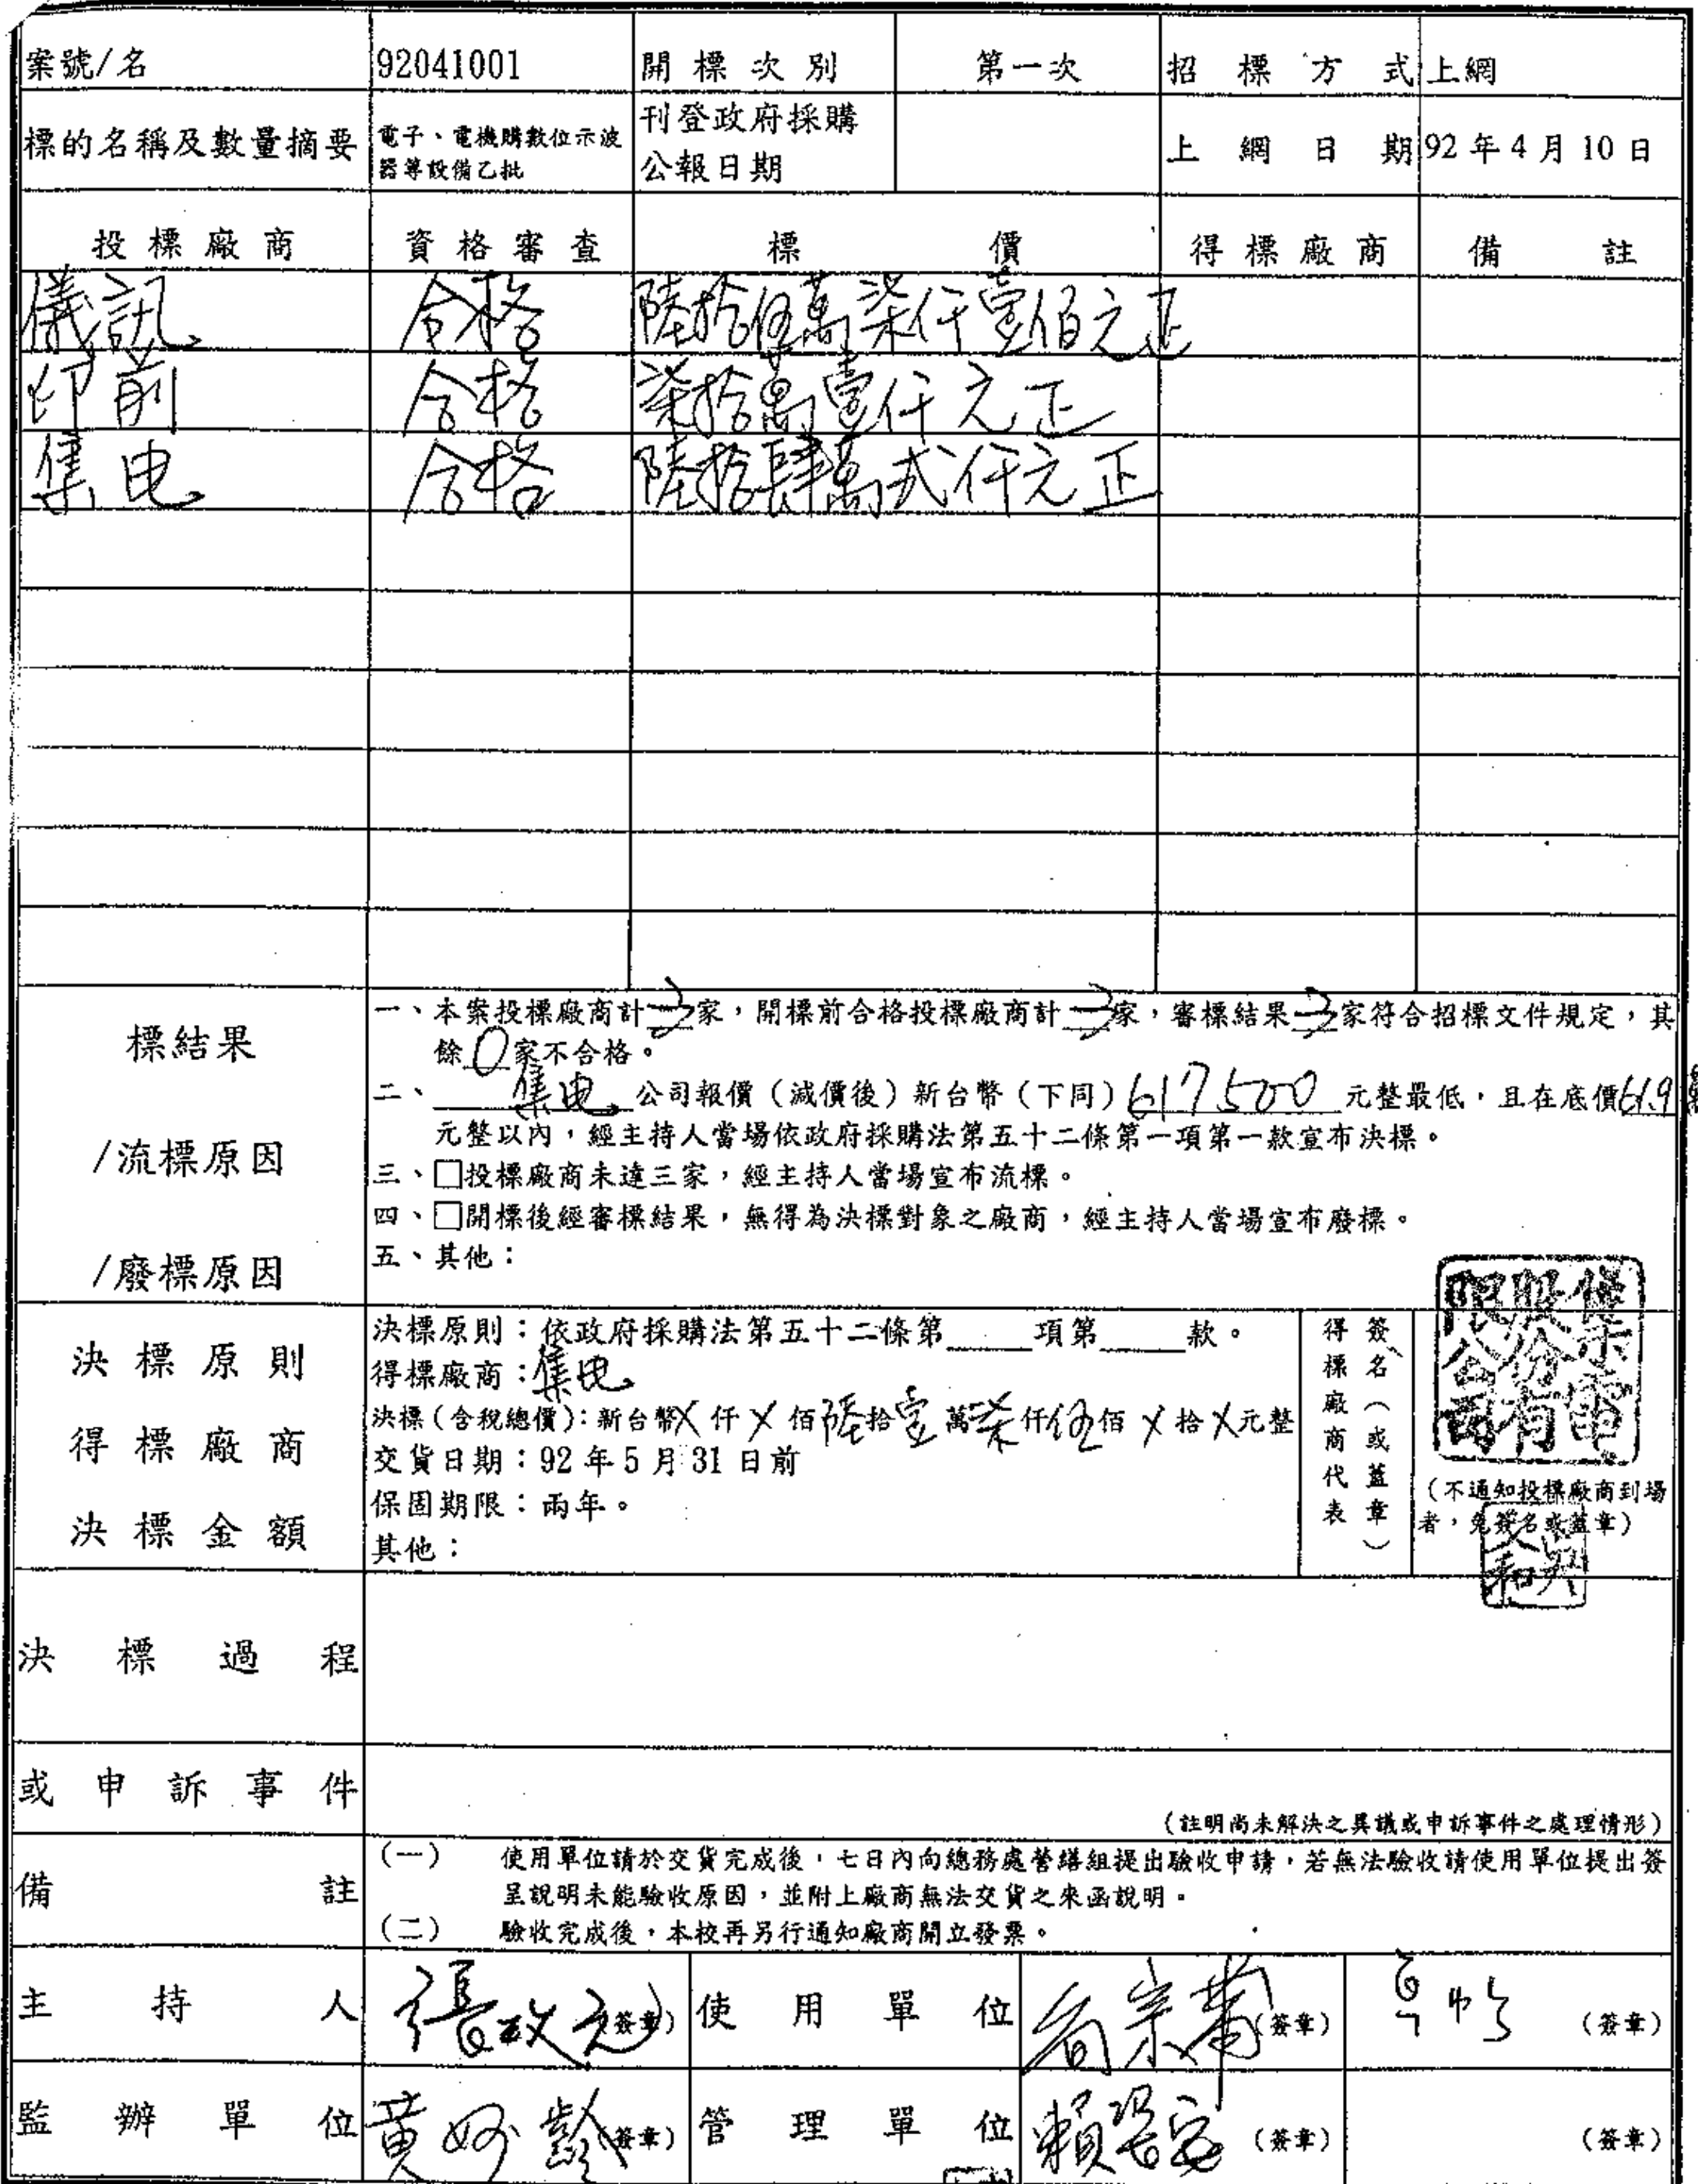 案號/名 92041001 開標次別 第一次 招標方式 上網
標的名稱及數量摘要 電子、電機購數位示波器等設備乙批 刊登政府採購公報日期 上網日期 92年4月10日
投標廠商 資格審查 標價 得標廠商 備註
儀訊 合格 陸拾伍萬柒仟壹佰元正
印前 合格 柒拾萬壹仟元正
集电 合格 陸拾肆萬弍仟元正
標結果
/流標原因
/廢標原因
一、本案投標廠商計三家，開標前合格投標廠商計三家，審標結果三家符合招標文件規定，其
餘0家不合格。
二、集电公司報價（減價後）新台幣（下同）617500元整最低，且在底價61.9萬
元整以內，經主持人當場依政府採購法第五十二條第一項第一款宣布決標。
三、□投標廠商未達三家，經主持人當場宣布流標。
四、□開標後經審標結果，無得為決標對象之廠商，經主持人當場宣布廢標。
五、其他：
決標原則
得標廠商
決標金額
決標原則：依政府採購法第五十二條第____項第____款。
得標廠商：集电
決標(含稅總價)：新台幣X仟X佰陸拾壹萬柒仟伍佰X拾X元整
交貨日期：92年5月31日前
保固期限：兩年。
其他：
得標廠商代表
簽名（或蓋章）
集電股份有限公司
（不通知投標廠商到場
者，免簽名或蓋章）
決標過程
或申訴事件
（註明尚未解決之異議或申訴事件之處理情形）
備註
（一） 使用單位請於交貨完成後，七日內向總務處營繕組提出驗收申請，若無法驗收請使用單位提出簽
呈說明未能驗收原因，並附上廠商無法交貨之來函說明。
（二） 驗收完成後，本校再另行通知廠商開立發票。
主持人 張政元 (簽章) 使用單位 (簽章) (簽章)
監辦單位 黃妙齡 (簽章) 管理單位 (簽章) (簽章)